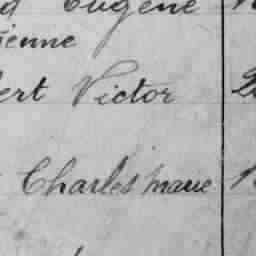 Eugène
ienne
ert Victor
Charles marie